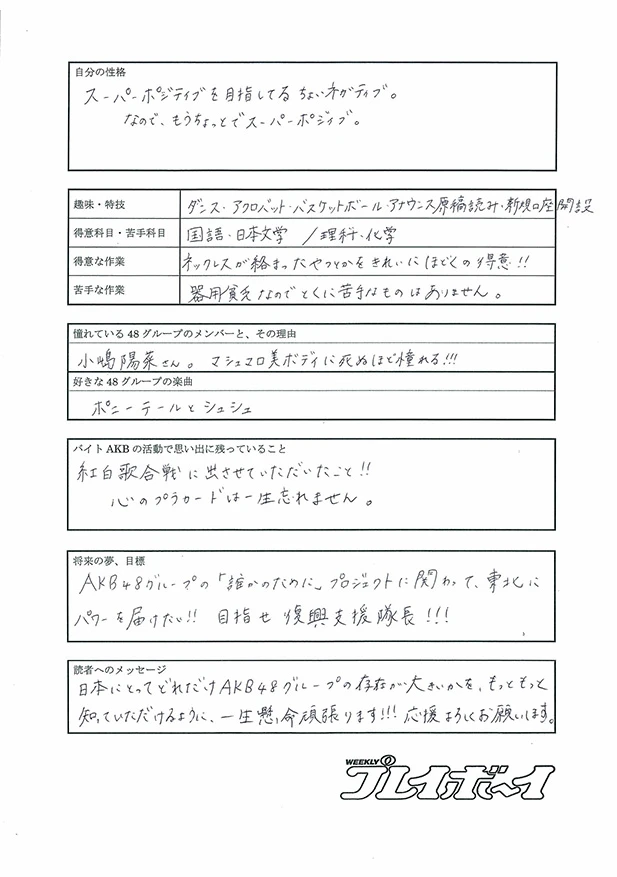 自分の性格
スーパーポジティブを目指してる ちょいネガティブ。
なので、もうちょっとでスーパーポジィブ。
趣味・特技
ダンス・アクロバット・バスケットボール・アナウンス原稿読み・新規口座開設
得意科目・苦手科目
国語・日本文学 / 理科・化学
得意な作業
ネックレスが絡まったやつとかをきれいにほどくの得意!!
苦手な作業
器用貧乏なのでとくに苦手なものはありません。
憧れている48グループのメンバーと、その理由
小嶋陽菜さん。 マシュマロ美ボディに死ぬほど憧れる!!!
好きな48グループの楽曲
ポニーテールとシュシュ
バイトAKBの活動で思い出に残っていること
紅白歌合戦に出させていただいたこと!!
心のプラカードは一生忘れません。
将来の夢、目標
AKB48グループの「誰かのために」プロジェクトに関わって、東北に
パワーを届けたい!! 目指せ 復興支援隊長!!!
読者へのメッセージ
日本にとってどれだけAKB48グループの存在が大きいかを、もっともっと
知っていただけるように、一生懸命頑張ります!!! 応援よろしくお願いします。
WEEKLY
プレイボーイ